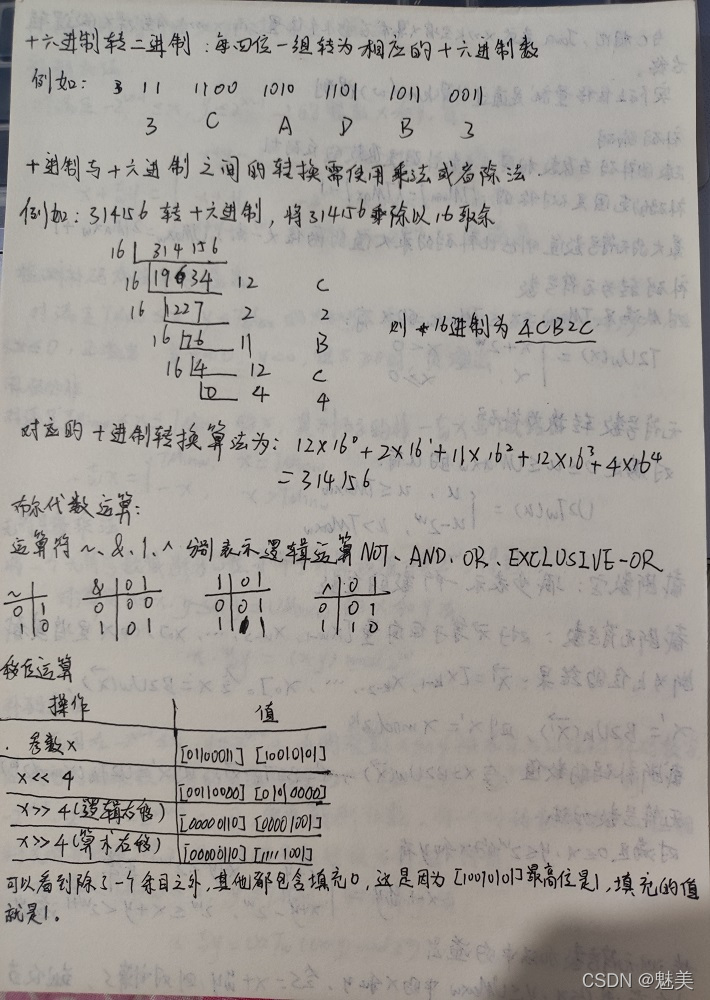 十六进制转二进制:每四位一组转为相应的十六进制数
例如: 3 11 1100 1010 1101 1011 0011
3 C A D B 3
十进制与十六进制之间的转换需使用乘法或者除法.
例如: 314156 转十六进制, 将314156乘除以16取余
16 314156
16 19634 12 C
16 1227 2 2
16 76 11 B
16 4 12 C
0 4 4
则 16进制为 4CB2C
对应的十进制转换算法为: 12×16⁰+2×16¹+11×16²+12×16³+4×16⁴
=314156
布尔代数运算:
运算符 ~、&、|、^ 分别表示逻辑运算 NOT、AND、OR、EXCLUSIVE-OR
~ | & 0 1 | 0 1 ^ 0 1
0 1 0 0 0 0 0 1 0 0 1
1 0 1 0 1 1 1 1 1 1 0
移位运算
操作 值
参数x [01100011] [10010101]
x<<4 [00110000] [01010000]
x>>4(逻辑右移) [00000110] [00001001]
x>>4(算术右移) [00000110] [11111001]
可以看到除了一个条目之外,其他都包含填充0,这是因为[10010101]最高位是1,填充的值
就是1。
CSDN @魅美